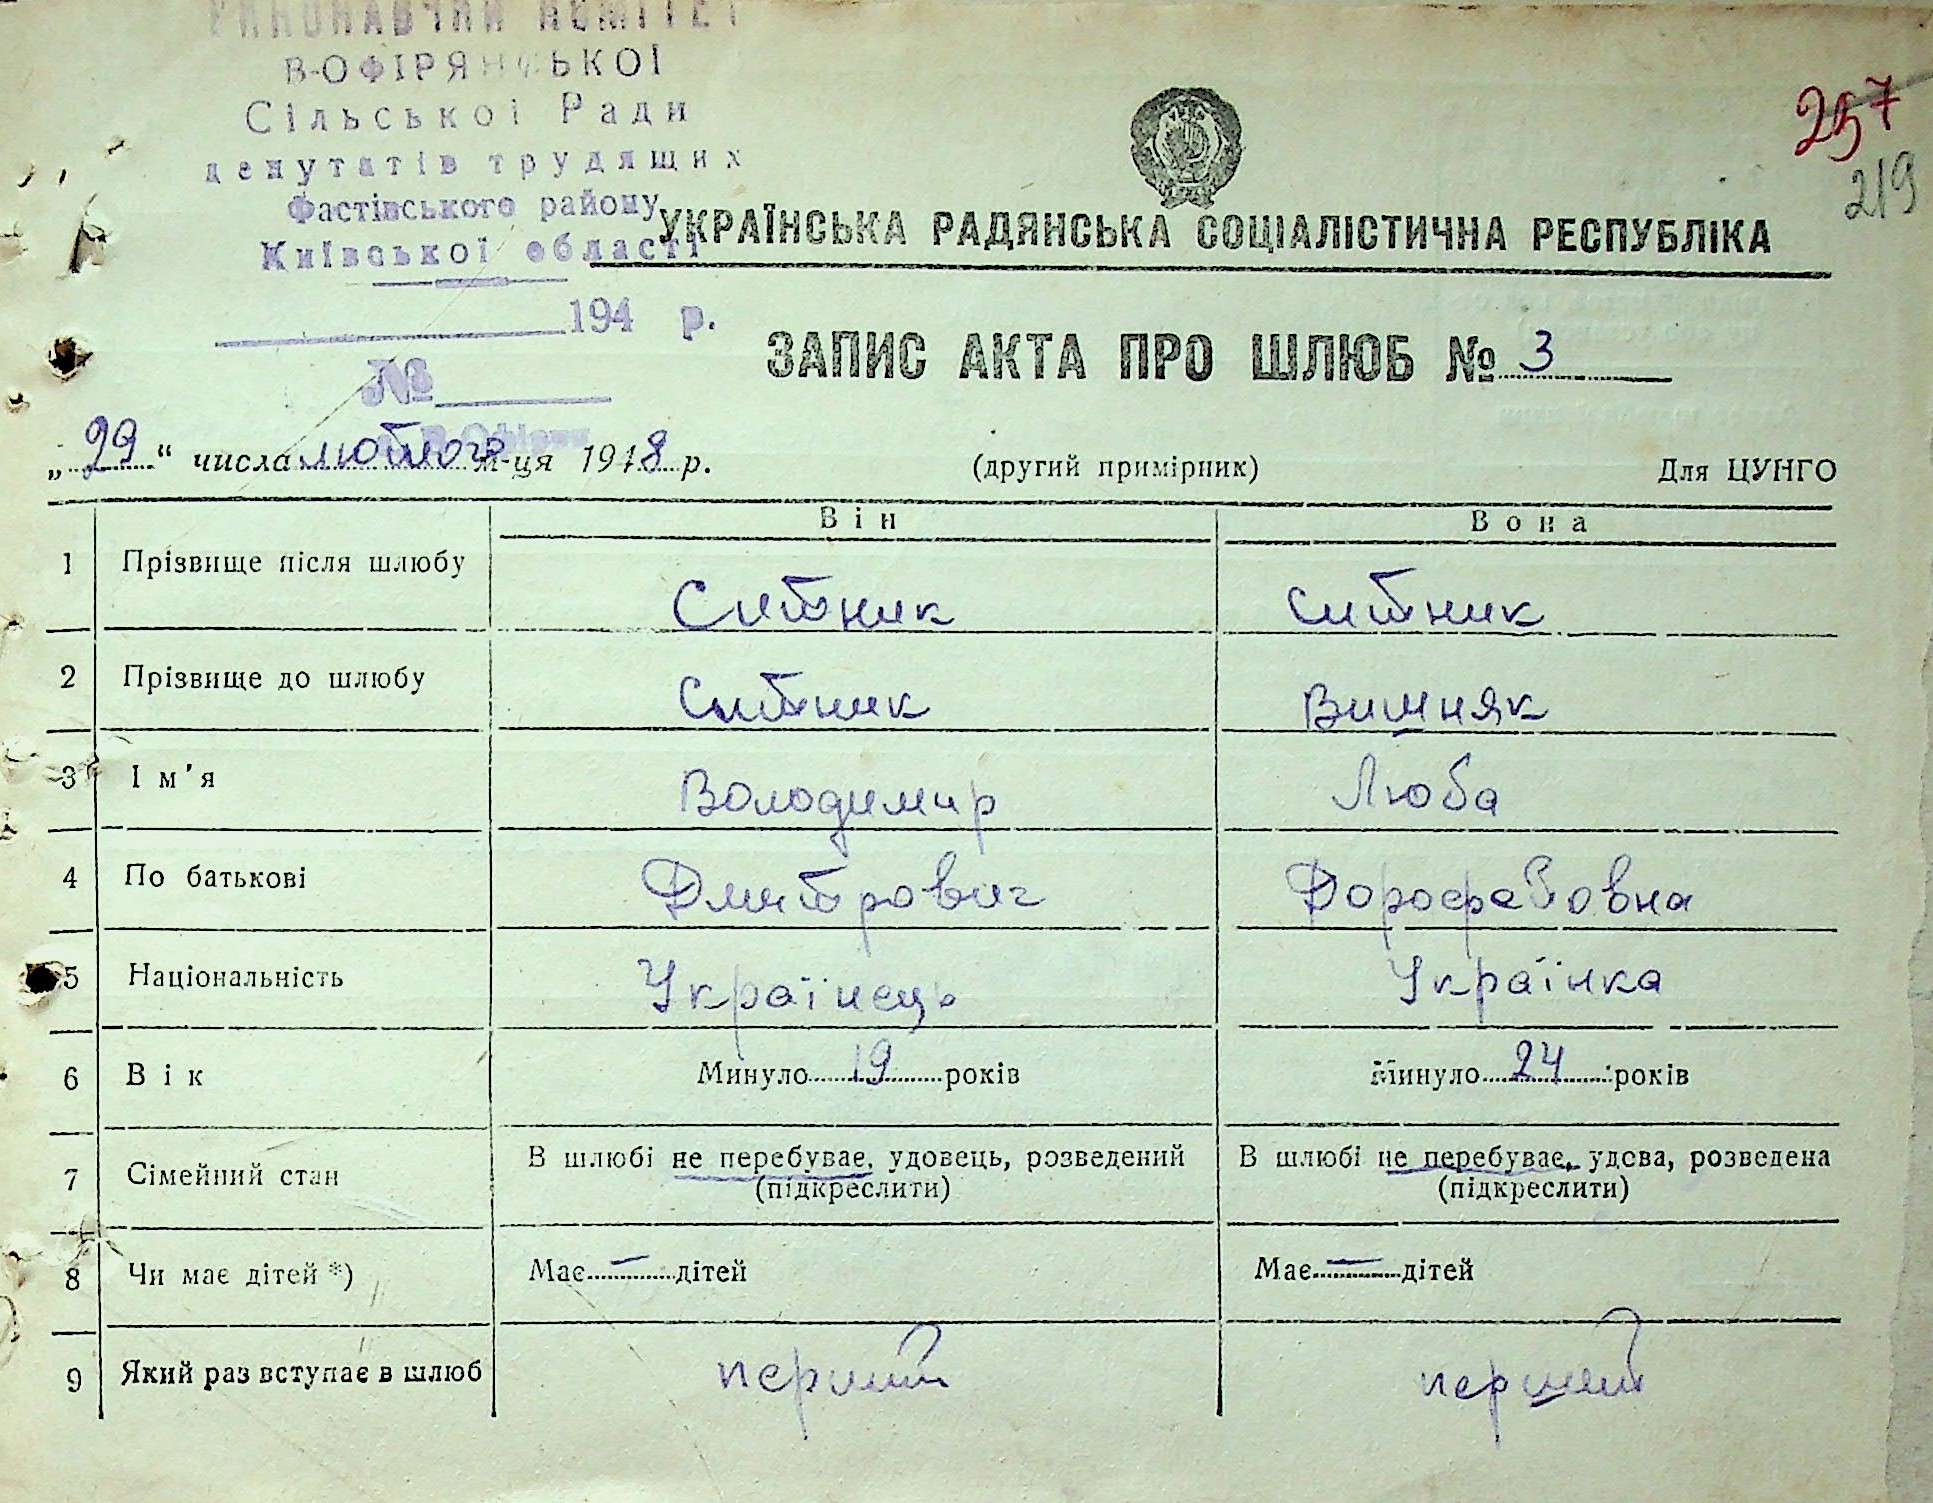 ВИКОНАВЧИЙ КОМІТЕТ
В-ОФІРЯНСЬКОІ
Сільськоі Ради
депутатів трудящих
Фастівського району
Київськоі області
194 р.
№
257
219
УКРАЇНСЬКА РАДЯНСЬКА СОЦІАЛІСТИЧНА РЕСПУБЛІКА
ЗАПИС АКТА ПРО ШЛЮБ № 3
„29“ числа лютого м-ця 1948 р. (другий примірник) Для ЦУНГО
Він Вона
1 Прізвище після шлюбу Ситник Ситник
2 Прізвище до шлюбу Ситник Вишняк
3 Ім'я Володимир Люба
4 По батькові Дмитрович Дорофейовна
5 Національність Українець Українка
6 Вік Минуло 19 років Минуло 24 років
7 Сімейний стан В шлюбі не перебуває, удовець, розведений В шлюбі не перебуває, удова, розведена
(підкреслити) (підкреслити)
8 Чи має дітей *) Має — дітей Має — дітей
9 Який раз вступає в шлюб перший перший